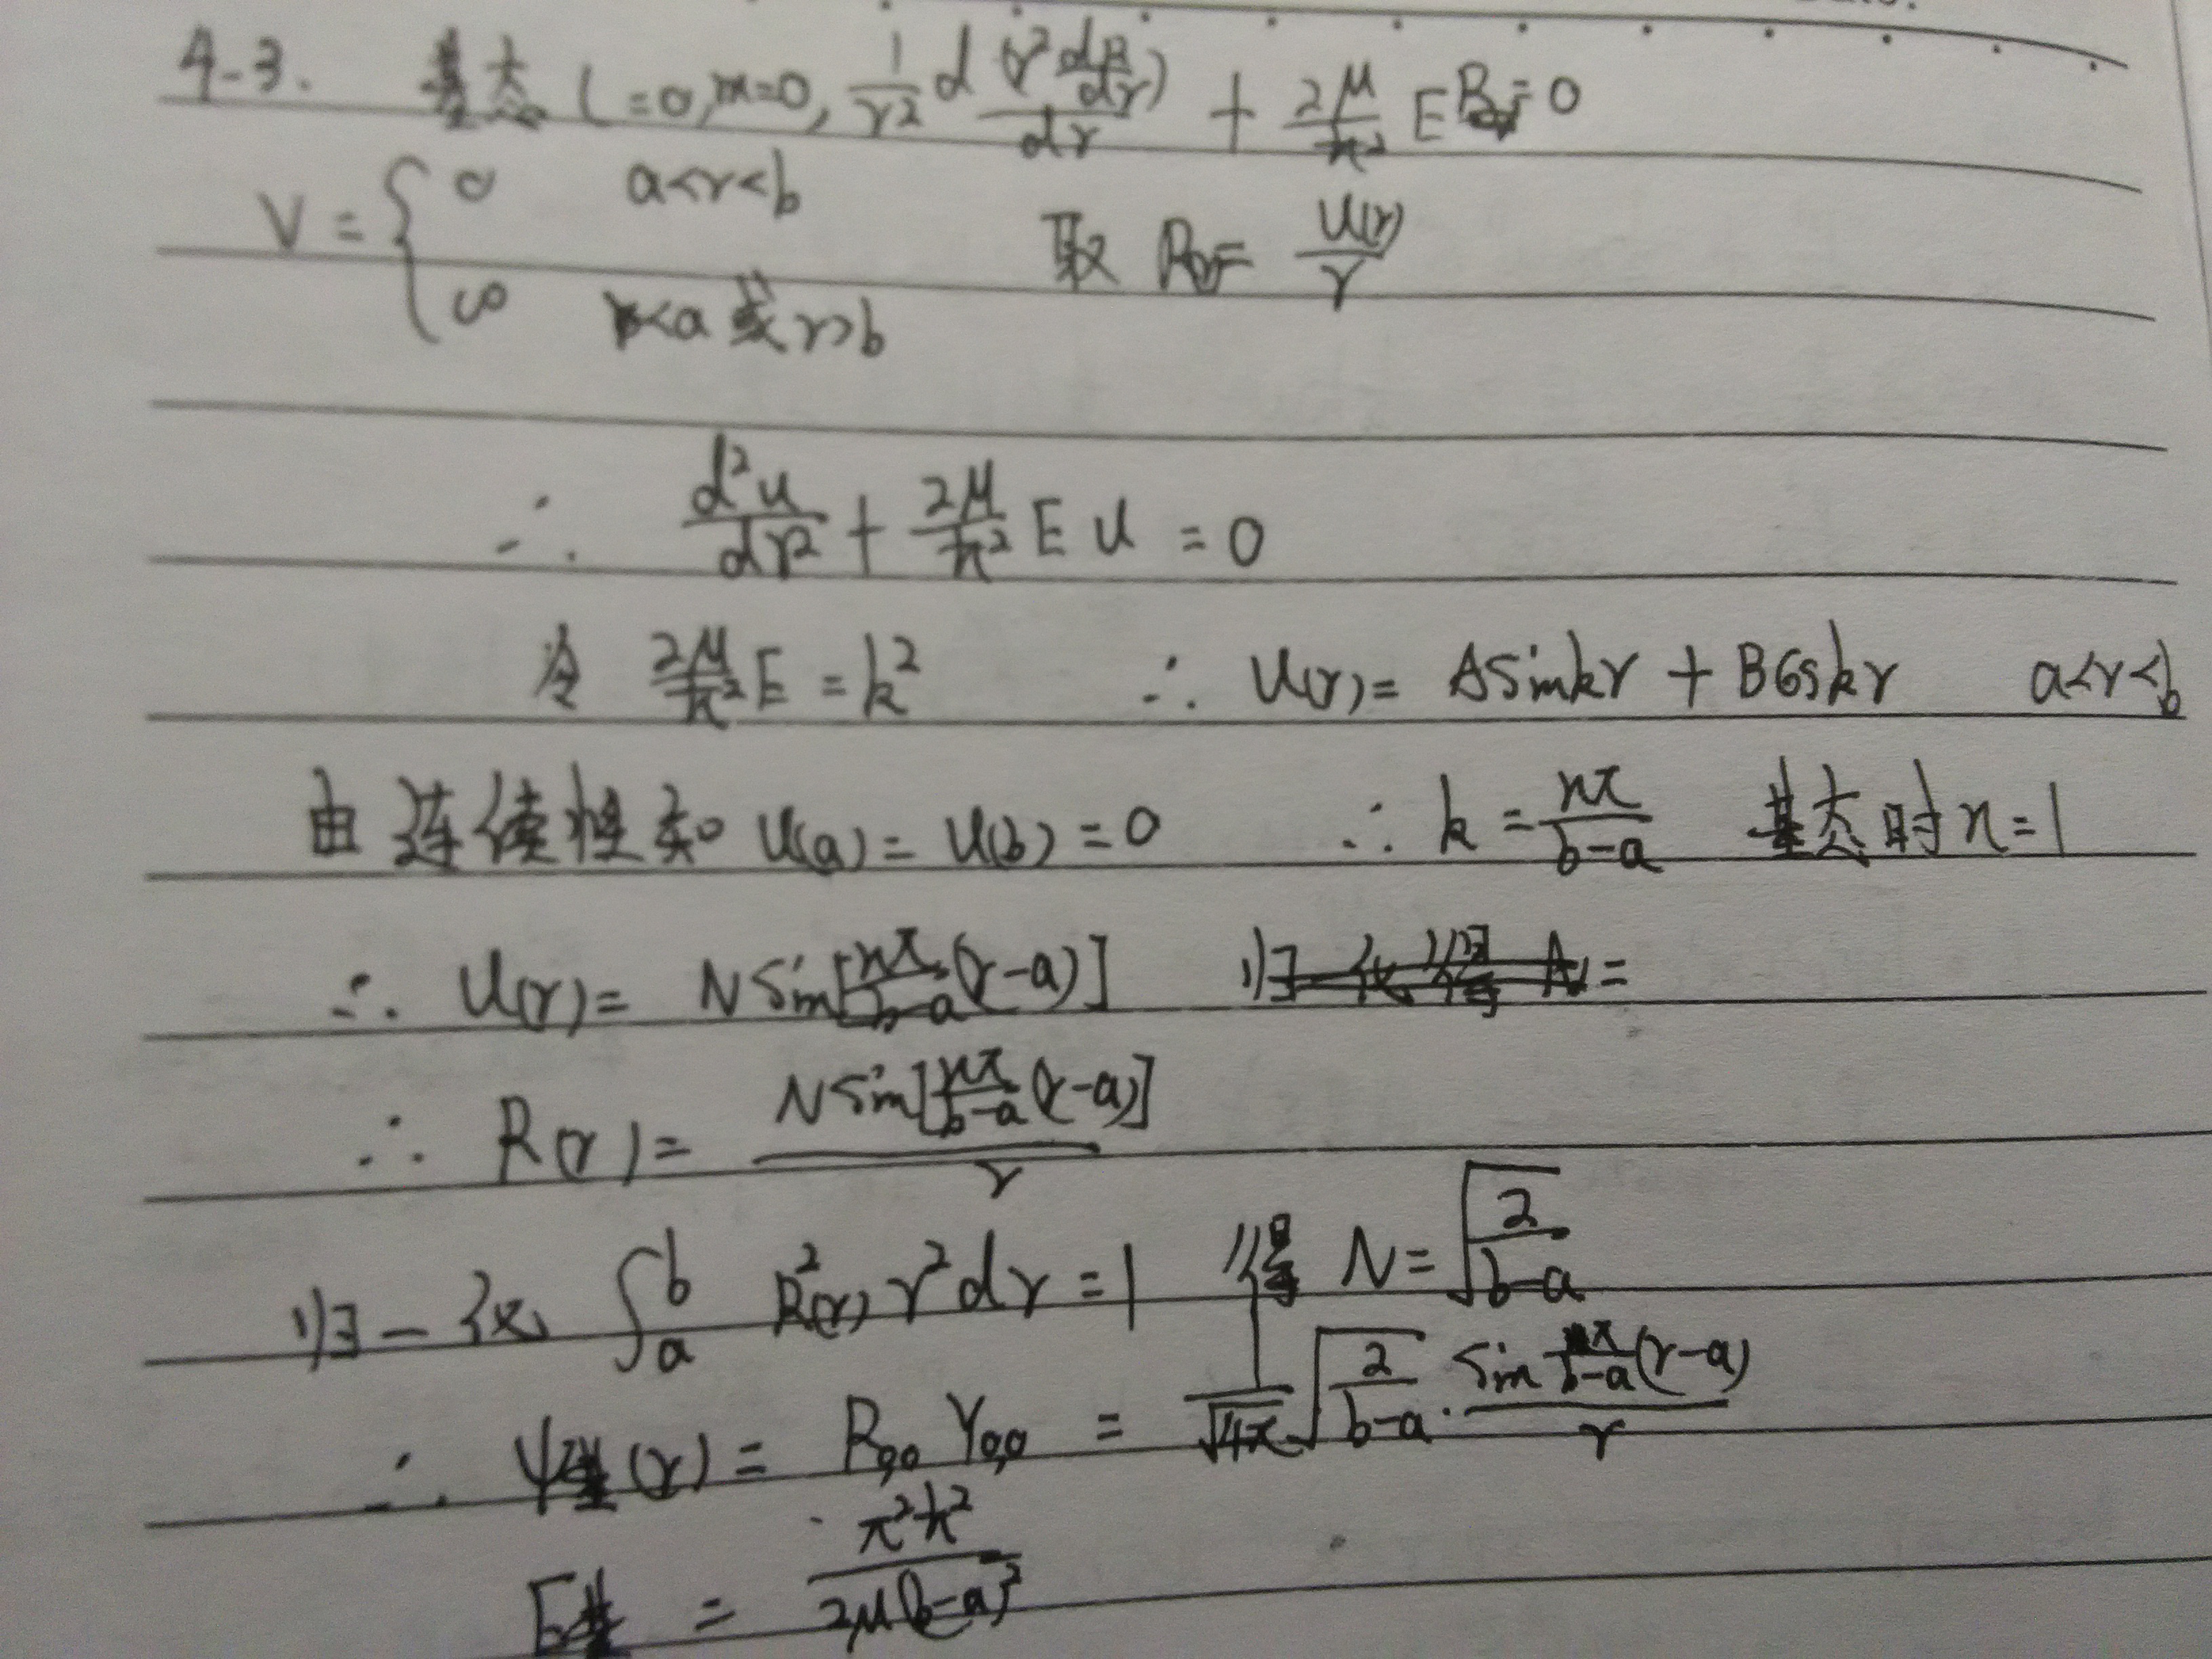 4-3. 基态 l=0, m=0, 1/r² d(r² dR/dr)/dr + 2μ/ħ² E R(r) = 0
V = { 0 a<r<b 取 R(r) = U(r)/r
∞ r<a 或 r>b
∴ d²u/dr² + 2μ/ħ² E u = 0
令 2μ/ħ² E = k² ∴ U(r) = A sin kr + B cos kr a<r<b
由连续性知 U(a) = U(b) = 0 ∴ k = nπ/(b-a) 基态时 n=1
∴ U(r) = N sin[nπ/(b-a) (r-a)] 归一化得 A =
∴ R(r) = N sin[nπ/(b-a) (r-a)] / r
归一化 ∫ₐᵇ R²(r) r² dr = 1 得 N = √(2/(b-a))
∴ ψ基(r) = R₀,₀ Y₀,₀ = 1/√4π √(2/(b-a)) · sin π/(b-a) (r-a) / r
E基 = π²ħ² / 2μ(b-a)²